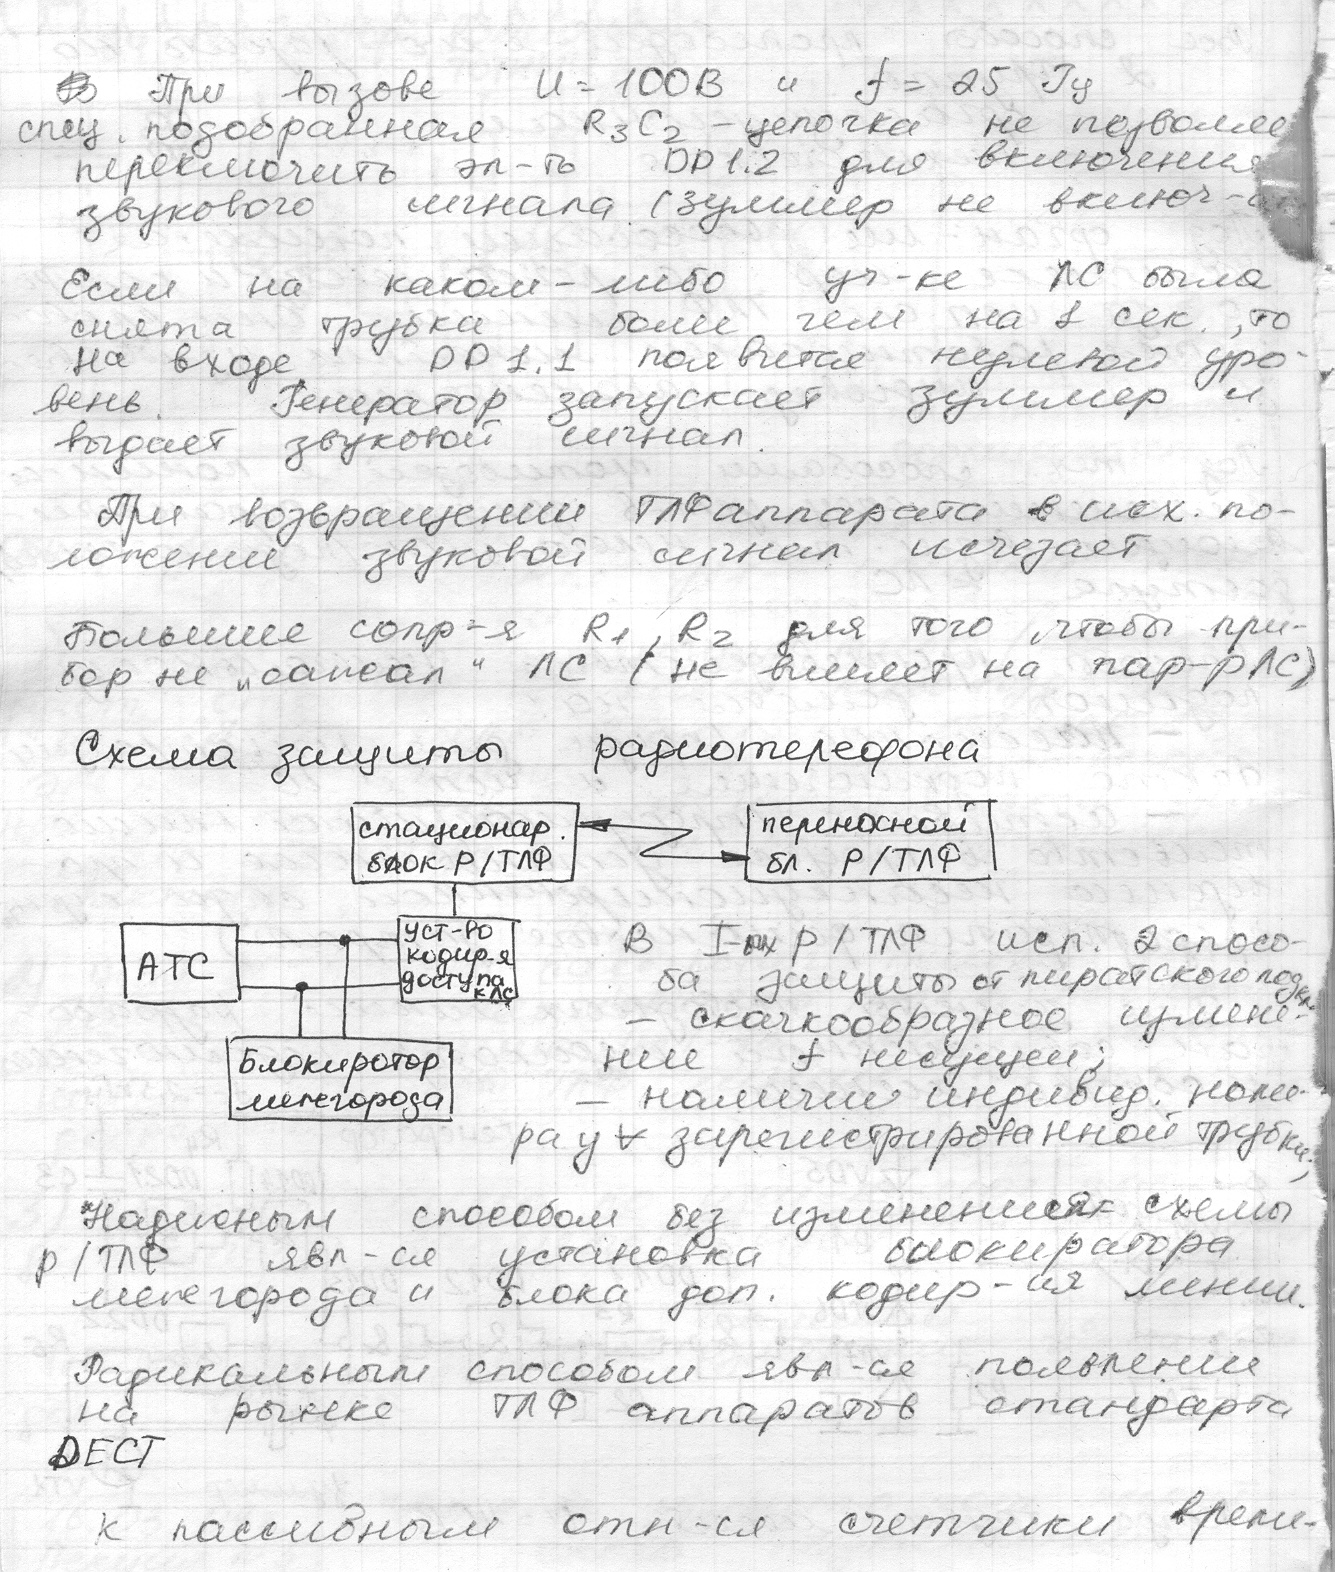 При вызове U = 100В и f = 25 Гц
спец. подобранная R3C2 - цепочка не позволяе
переключить эл-ть DD1.2 для включения
звукового сигнала (зуммер не включ-
Если на каком-либо уч-ке ЛС была
снята трубка более чем на 1 сек., то
на входе DD1.1 появится нулевой уро-
вень. Генератор запускает зуммер и
выдает звуковой сигнал.
При возвращении ТЛФ аппарата в исх. по-
ложение звуковой сигнал исчезает
Большие сопр-я R1, R2 для того, чтобы при-
бор не „сажал“ ЛС (не влияет на пар-р ЛС)
Схема защиты радиотелефона
стационар.
блок Р/ТЛФ
переносной
бл. Р/ТЛФ
АТС
уст-во
кодир-я
доступа
к ЛС
Блокиротор
межгорода
В I-ых Р/ТЛФ исп. 2 спосо-
ба защиты от пиратского подкл.
— скачкообразное измене-
ние f несущей;
— наличие индивид. номе-
ра у ∀ зарегистрированной трубки;
Надежным способом без изменения схемы
р/ТЛФ явл-ся установка блокиратора
межгорода и блока доп. кодир-ия линии.
Радикальным способом явл-ся появление
на рынке ТЛФ аппаратов стандарта
DECT
К пассивным отн-ся счетчики време-